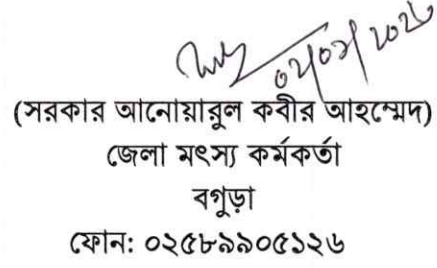 (সরকার আনোয়ারুল কবীর আহম্মেদ)
জেলা মৎস্য কর্মকর্তা
বগুড়া
ফোন: ০২৫৮৯৯০৫১২৬